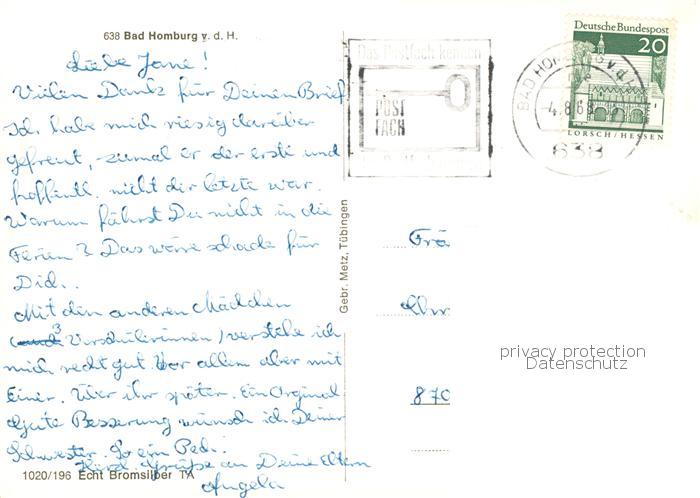 638 Bad Homburg v. d. H.
Liebe Jane!
Vielen Dank für Deinen Brief
Ich habe mich riesig darüber
gefreut, zumal er der erste und
hoffentl. nicht der letzte war.
Warum fährst Du nicht in die
Ferien? Das wäre schade für
Dich.
Mit den anderen Mädchen
(3 Vorschülerinnen) verstehe ich
mich recht gut. Vor allem aber mit
Einer. Über ihr später. Ein Orginal
Gute Besserung wünsch ich Deiner
Schwester. So ein Pech.
Herzl. Grüße an Deine Eltern
Angela
1020/196 Echt Bromsilber TA
Gebr. Metz, Tübingen
Das Postfach kennen
POST
FACH
BAD HOMBURG v.d.
-4.8.6
638
Deutsche Bundespost
20
LORSCH / HESSEN
Frä
870
privacy protection
Datenschutz